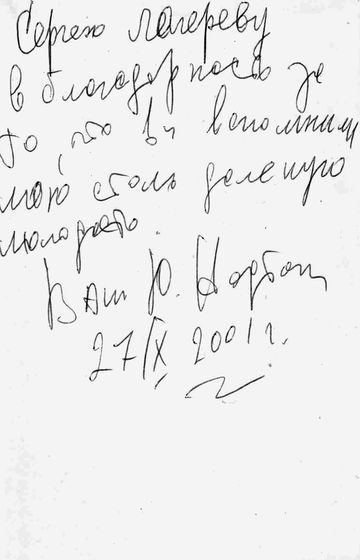 Сергею Лагереву
в благодарность за
то, что Вы вспомнили
мою столь далекую
молодость.
Ваш Ю.
27/X 2001 г.